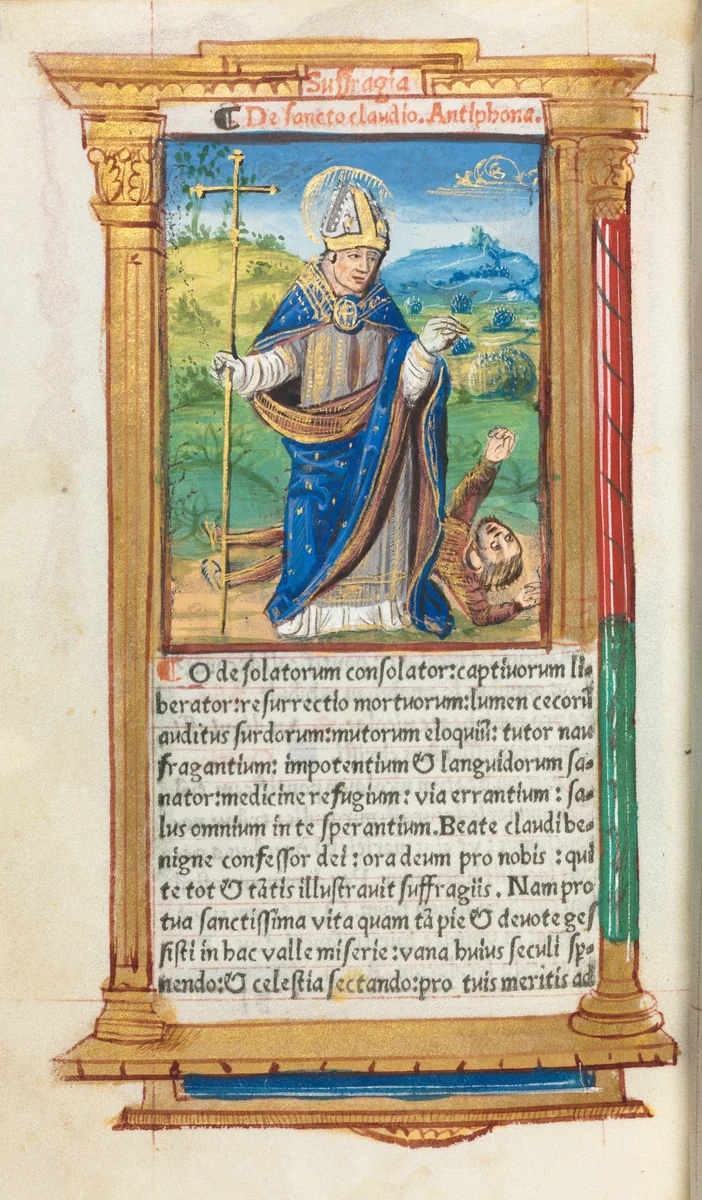 Suffragia
¶ De sancto claudio. Antiphona.
¶ O desolatorum consolator: captiuorum li-
berator: resurrectio mortuorum: lumen cecorũ
auditus surdorum: mutorum eloquiũ: tutor nau
fragantium: impotentium & languidorum sa-
nator: medicine refugium: via errantium: sa-
lus omnium in te sperantium. Beate claudi be-
nigne confessor dei: ora deum pro nobis: qui
te tot & tãtis illustrauit suffragiis. Nam pro
tua sanctissima vita quam tã pie & deuote ges
sisti in hac valle miserie: vana huius seculi sp-
nendo: & celestia sectando: pro tuis meritis ad